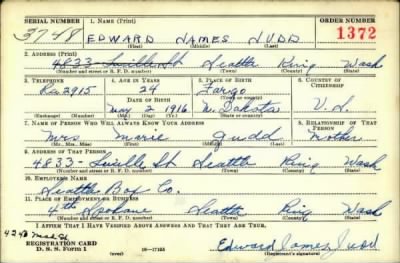 SERIAL NUMBER 1. NAME (Print) ORDER NUMBER
3748 EDWARD JAMES JUDD 1372
(First) (Middle) (Last)
2. ADDRESS (Print)
4833 Lucile St Seattle King Wash
(Number and street or R. F. D. number) (Town) (County) (State)
3. TELEPHONE 4. AGE IN YEARS 5. PLACE OF BIRTH 6. COUNTRY OF CITIZENSHIP
Ra 2915 24 Fargo
DATE OF BIRTH (Town or county)
May 2 1916 N. Dakota U.S.
(Exchange) (Number) (Mo.) (Day) (Yr.) (State or country)
7. NAME OF PERSON WHO WILL ALWAYS KNOW YOUR ADDRESS 8. RELATIONSHIP OF THAT PERSON
Mrs Marie Judd Mother
(Mr., Mrs., Miss) (First) (Middle) (Last)
9. ADDRESS OF THAT PERSON
4833- Lucille St Seattle King Wash
(Number and street or R. F. D. number) (Town) (County) (State)
10. EMPLOYER'S NAME
Seattle Box Co.
11. PLACE OF EMPLOYMENT OR BUSINESS
4th Spokane Seattle King Wash
(Number and street or R. F. D. number) (Town) (County) (State)
I AFFIRM THAT I HAVE VERIFIED ABOVE ANSWERS AND THAT THEY ARE TRUE.
REGISTRATION CARD
D. S. S. Form 1 (over) 16-17105 Edward James Judd
(Registrant's signature)